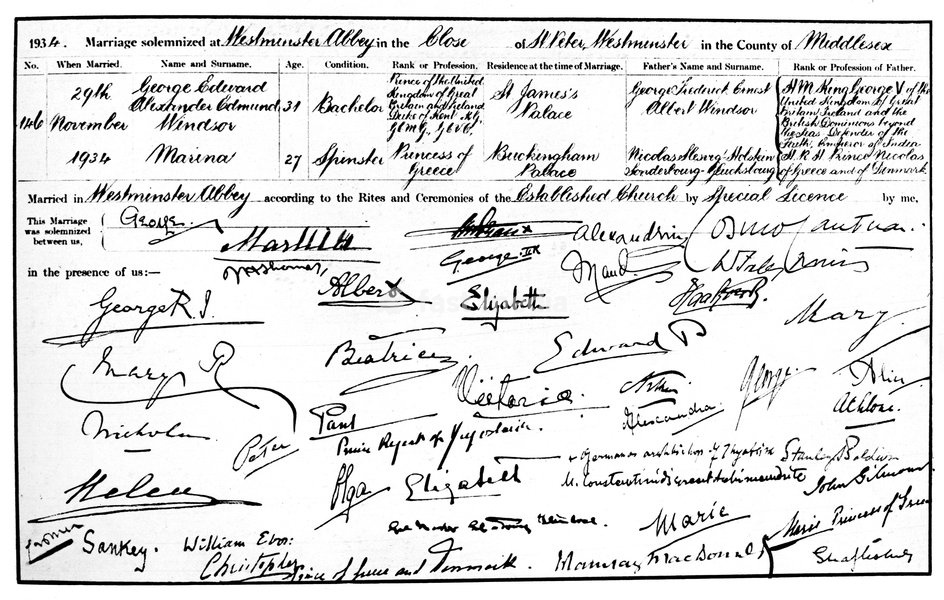 1934. Marriage solemnized at Westminster Abbey in the Close of St Peter, Westminster in the County of Middlesex
No. When Married. Name and Surname. Age. Condition. Rank or Profession. Residence at the time of Marriage. Father's Name and Surname. Rank or Profession of Father.
146
29th November 1934
George Edward
Alexander Edmund
Windsor
31
Bachelor
Prince of the United
Kingdom of Great
Britain and Ireland
Duke of Kent K.G.
G.C.M.G. G.C.V.O.
St James's
Palace
George Frederick Ernest
Albert Windsor
H M King George V of the
United Kingdom of Great
Britain, Ireland and the
British Dominions beyond
the Seas, Defender of the
Faith, Emperor of India
Marina
27
Spinster
Princess of
Greece
Buckingham
Palace
Nicolas Slesvig-Holstein
Sonderbourg-Glucksbourg
H.R.H Prince Nicolas
of Greece and of Denmark
Married in Westminster Abbey according to the Rites and Ceremonies of the Established Church by Special Licence by me,
This Marriage
was solemnized
between us,
George.
Marina
Alexandrin
Cosmo Cantuar:
in the presence of us:—
George II R
Maud
George R.I.
Albert
Elizabeth
Mary
Mary R
Beatrice
Edward P
Victoria
George
Alice
Nicholas
Peter
Paul
Prince Regent of Yugoslavia.
Alexandra
Athlone.
Helen
Olga
Elizabeth
+ Germanos archbishop of Thyatira
Stanley Baldwin
M. Constantinidis great archimandrite
John Gilmour
Marie
Marie Princess of Greece
Sankey.
William Ebor:
Christopher
Prince of Greece and Denmark.
J Ramsay MacDonald
Shaftesbury